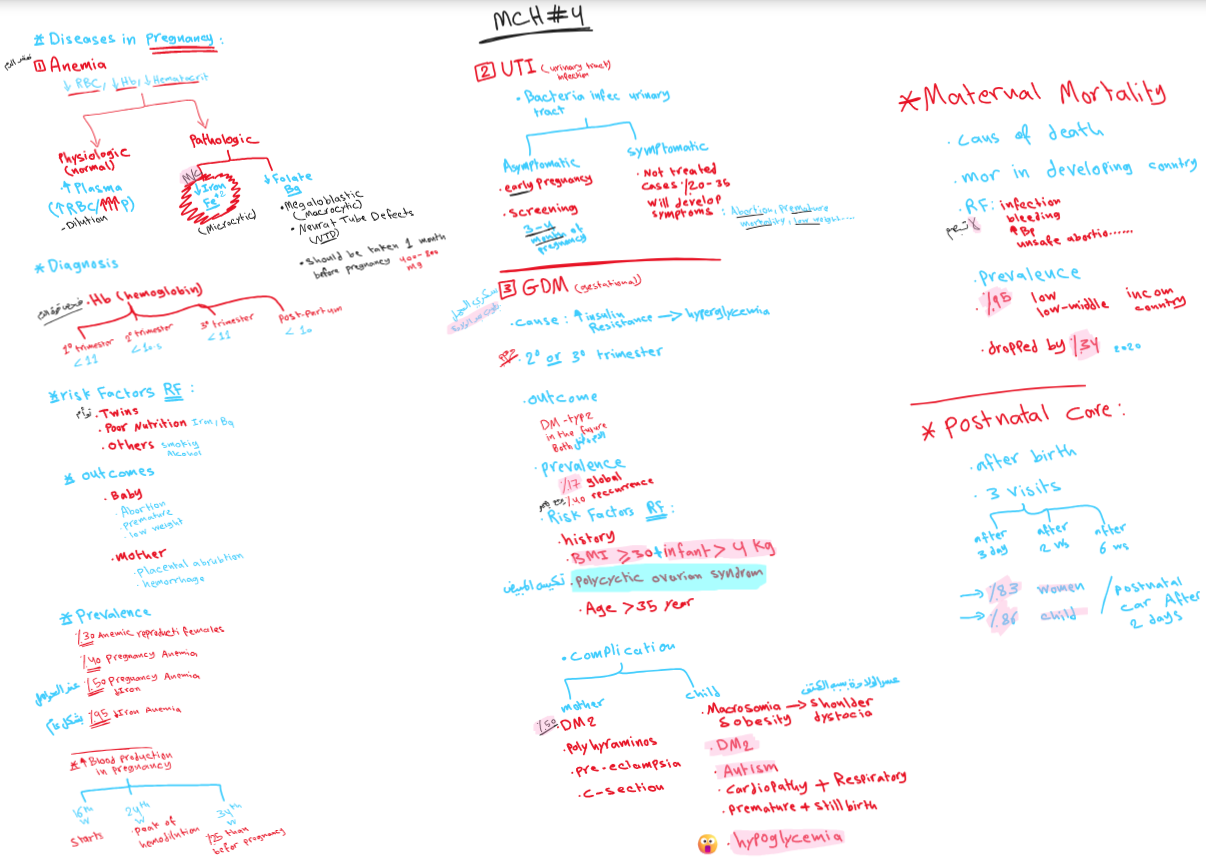 MCH#4
* Diseases in pregnancy :
1 Anemia
↓ RBC, ↓ Hb, ↓ Hematocrit
Physiologic
(normal)
↑ Plasma
(↑RBC/↑↑↑P)
- Dilution
Pathologic
M/C
↓ Iron
Fe+2
(Microcytic)
↓ Folate
B9
• Megaloblastic
(Macrocytic)
• Neural Tube Defects
(NTD)
• should be taken 1 month
before pregnancy 400-800
mg
* Diagnosis
• Hb (hemoglobin)
1° trimester
< 11
2° trimester
< 10.5
3° trimester
< 11
Post-Partum
< 10
* risk Factors RF :
توأم • Twins
• Poor Nutrition Iron, B9
• others smokig
Alcohol
* outcomes
• Baby
• Abortion
• premature
• low weight
• mother
• placental abrubtion
• hemorrhage
* Prevalence
٪30 Anemic reproducti females
٪40 Pregnancy Anemia
عند الحوامل ٪50 Pregnancy Anemia
↓Iron
بشكل عام ٪95 ↓Iron Anemia
* ↑ Blood production
in pregnancy
16th
w
starts
24th
w
peak of
hemodilution
34th
w
٪25 than
befor pregnancy
2 UTI (urinary tract)
infection
• Bacteria infec urinary
tract
Asymptomatic
• early Pregnancy
• screening
3-4
month of
pregnancy
symptomatic
• Not treated
cases ٪20-35
will develop
symptoms : Abortion, Premature
mortality, low weight.....
سكري الحمل
3 GDM (gestational)
• cause : ↑ insulin
Resistance → hyperglycemia
• 2° or 3° trimester
• outcome
DM-type2
in the future
Both
• prevalence
٪17 global
٪40 reccurrence
• Risk Factors RF :
• history
• BMI ≥ 30 + infant > 4 Kg
تكيس المبيض • polycyctic ovarian syndrom
• Age > 35 year
• complication
mother
٪50 DM2
• polyhyraminos
• pre-eclampsia
• c-section
child
عسر الولادة بسبب الكتف
• Macrosomia → shoulder
s obesity dystocia
• DM2
• Autism
• cardiopathy + Respiratory
• premature + still birth
• hypoglycemia
* Maternal Mortality
• caus of death
• mor in developing country
• RF : infection
bleeding
↑ Bp
unsafe abortio......
• prevalence
٪95 low incom
low-middle country
• dropped by ٪34 2020
* Postnatal care :
• after birth
• 3 visits
after
3 day
after
2 ws
after
6 ws
→ ٪83 women
→ ٪86 child
/ postnatal
car After
2 days